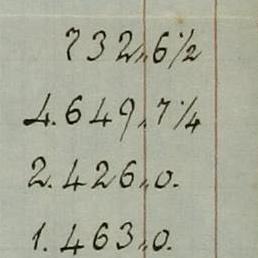 732,,6 1/2
4.649,,7 1/4
2.426,,0.
1.463,,0.